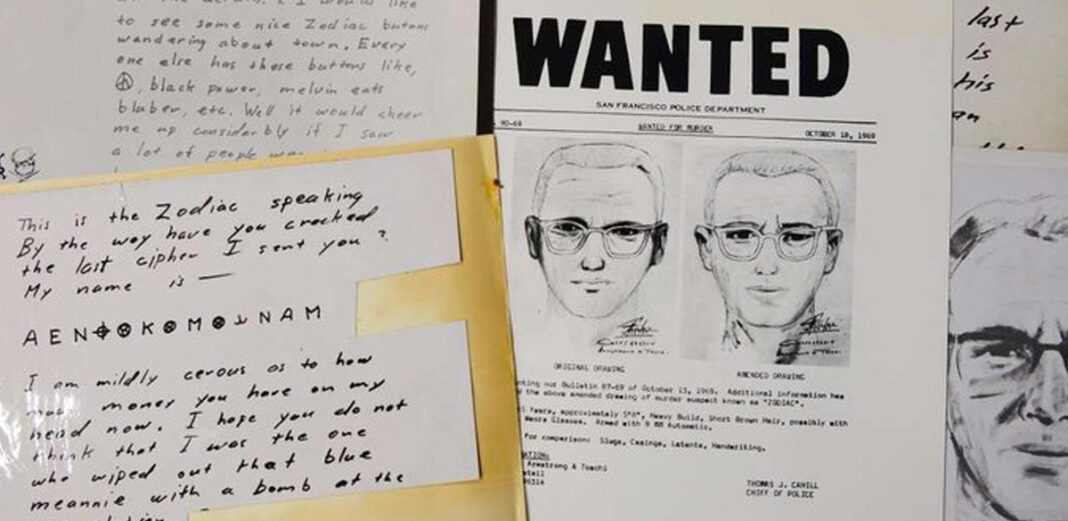 to see some nice Zodiac butons
wandering about town. Every
one else has these buttons like,
black power, melvin eats
blaber, etc. Well it would cheer
me up considerbly if I saw
a lot of people
This is the Zodiac speaking
By the way have you cracked
the last cipher I sent you?
My name is —
A E N ⌖ ⊗ K ⊗ M ⊗ N A M
I am mildly cerous as to how
much money you have on my
head now. I hope you do not
think that I was the one
who wiped out that blue
meannie with a bomb at the
WANTED
SAN FRANCISCO POLICE DEPARTMENT
90-69 WANTED FOR MURDER OCTOBER 18, 1969
ORIGINAL DRAWING AMENDED DRAWING
our Bulletin 87-69 of October 13, 1969. Additional information has
the above amended drawing of murder suspect known as "ZODIAC".
Years, approximately 5'8", Heavy Build, Short Brown Hair, possibly with
Wears Glasses. Armed with 9 MM Automatic.
For comparison: Slugs, Casings, Latents, Handwriting.
Armstrong & Toschi
THOMAS J. CAHILL
CHIEF OF POLICE
last
is
his
an